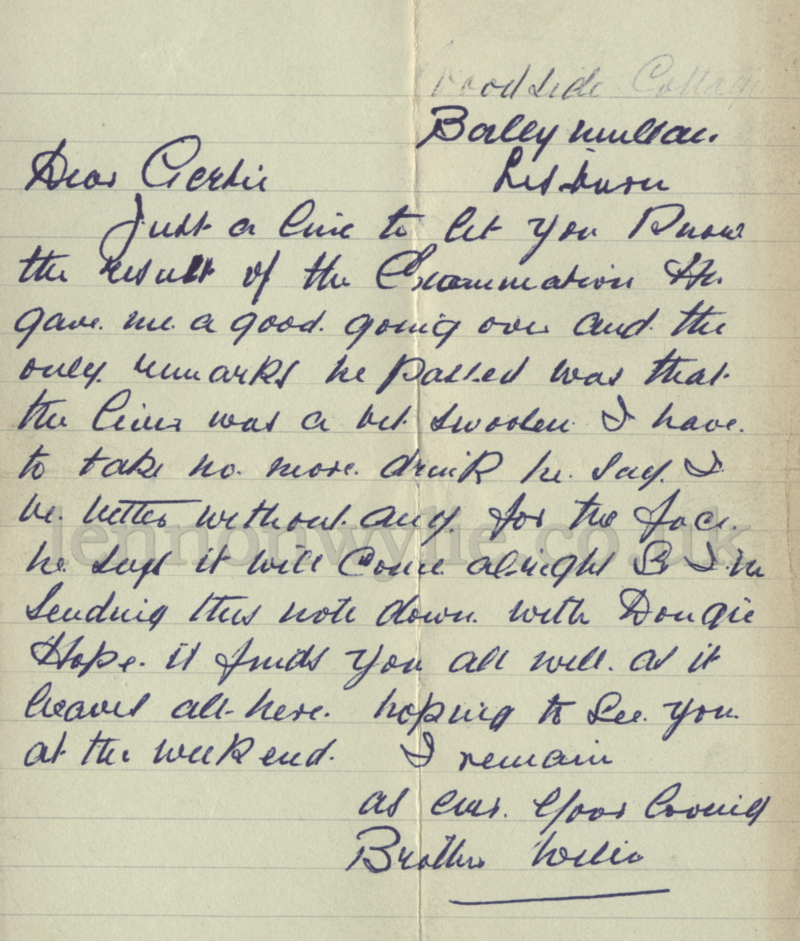 Woodside Cottage
Ballymullan
Lisburn
Dear Gertie
Just a line to let you know
the result of the Examination He
gave me a good going over and the
only remarks he passed was that
the liver was a bit swoolen I have
to take no more drink he say I
be better without any for the face
he says it will come alright So I'm
sending this note down with Dougie
Hope it finds you all well as it
leaves all here. hoping to see you
at the weekend. I remain
as ever Your loving
Brother Willie
lennonwylie.co.uk